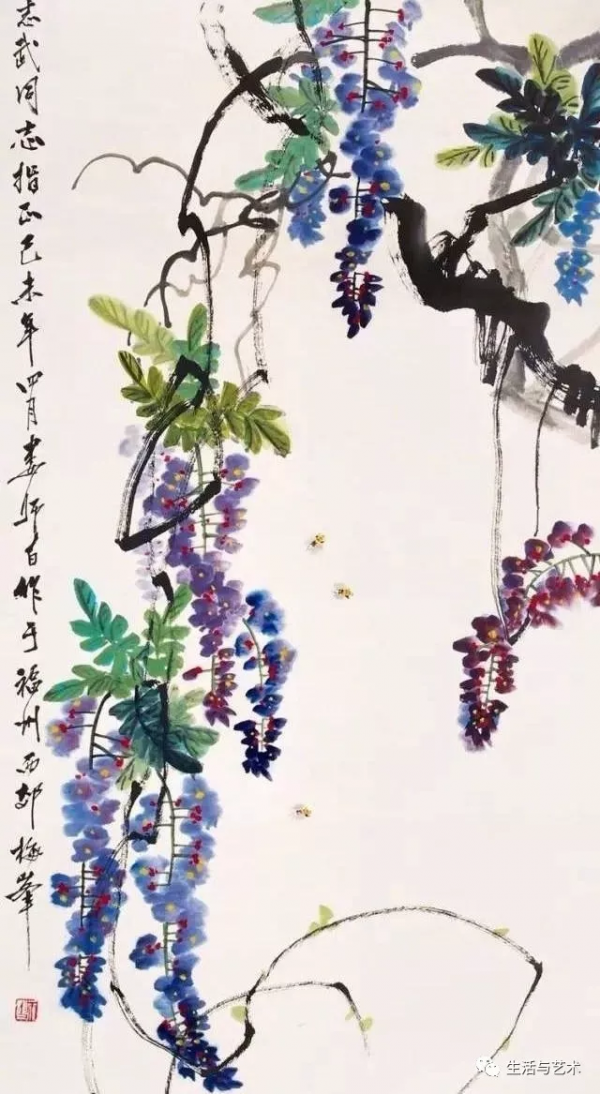 志武同志指正己未年四月娄师白作于福州西郊梅峯
生活与艺术